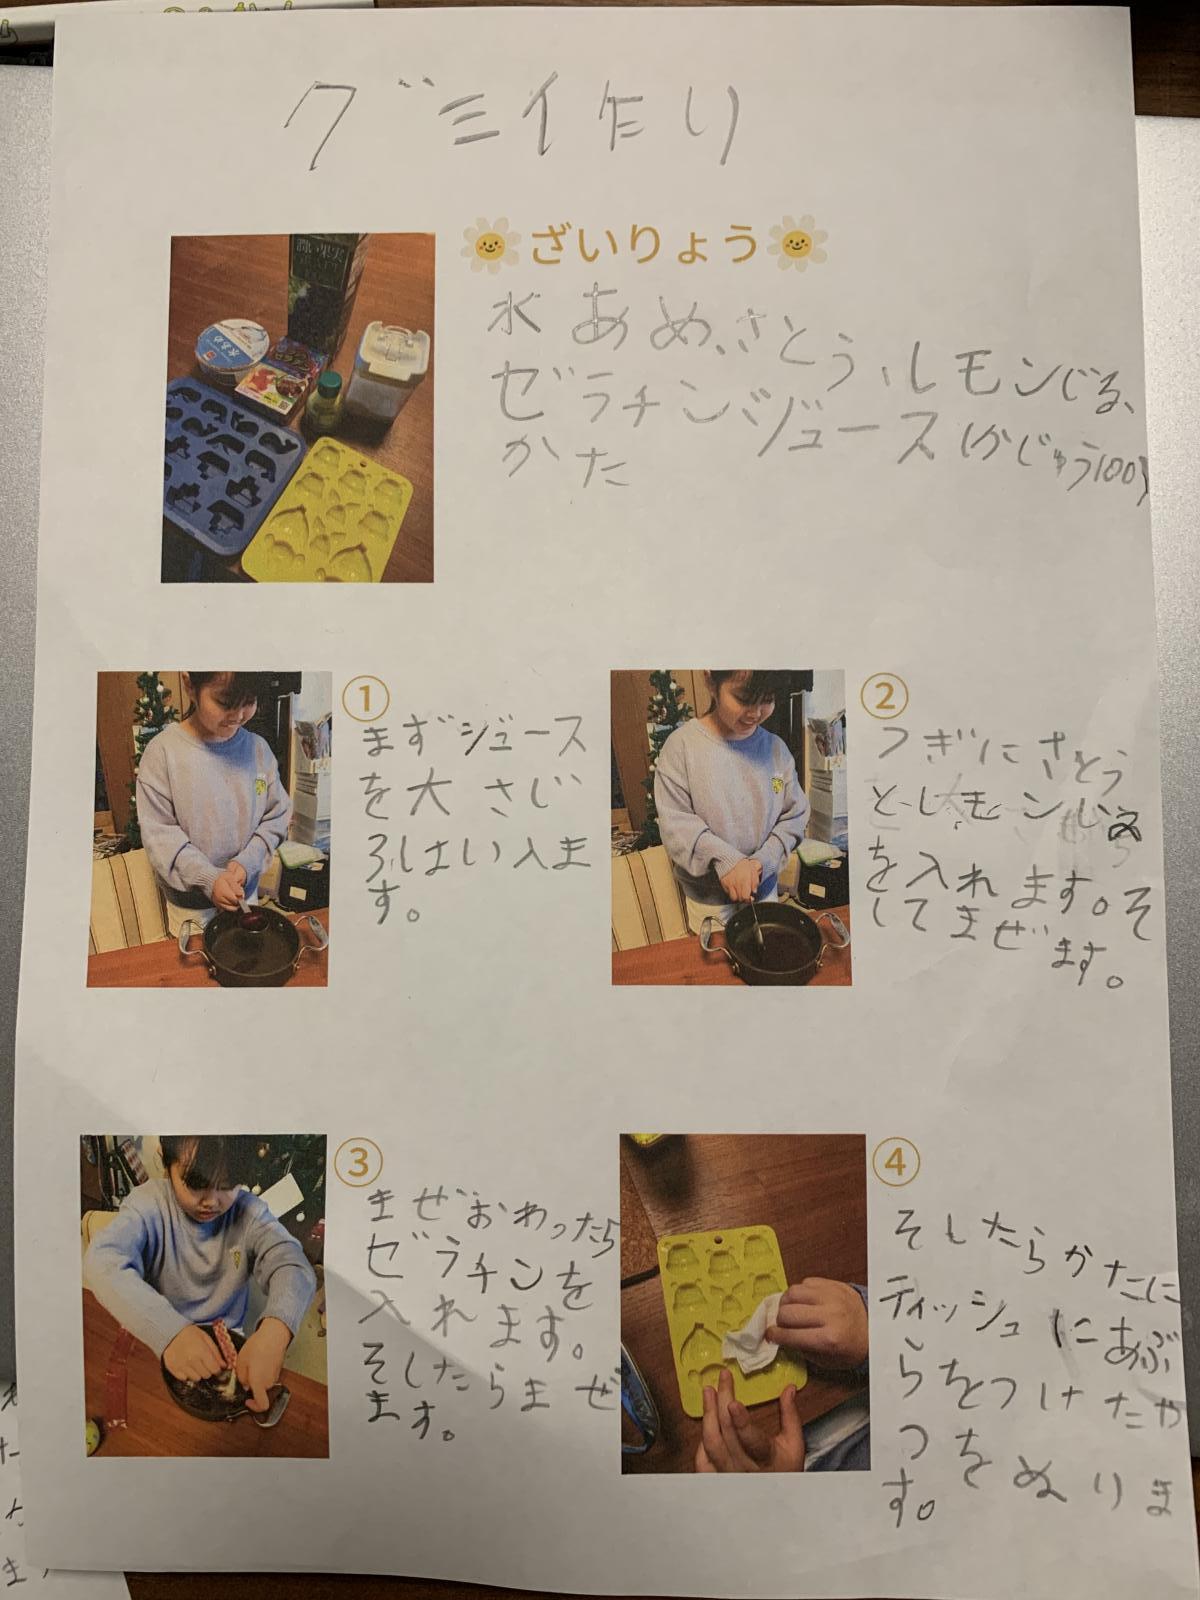 グミ作り
ざいりょう
水あめ、さとう、レモンじる、
ゼラチン ジュース(かじゅう100)
かた
濃い果実
水あめ
①
まずジュース
を大さじ
ふしはい入ま
す。
②
つぎにさとう
とレモンじる
を入れます。そ
してまぜます。
③
まぜおわったら
ゼラチンを
入れます。
そしたらまぜ
ます。
④
そしたらかたに
ティッシュにあぶ
らをつけたや
つをぬりま
す。